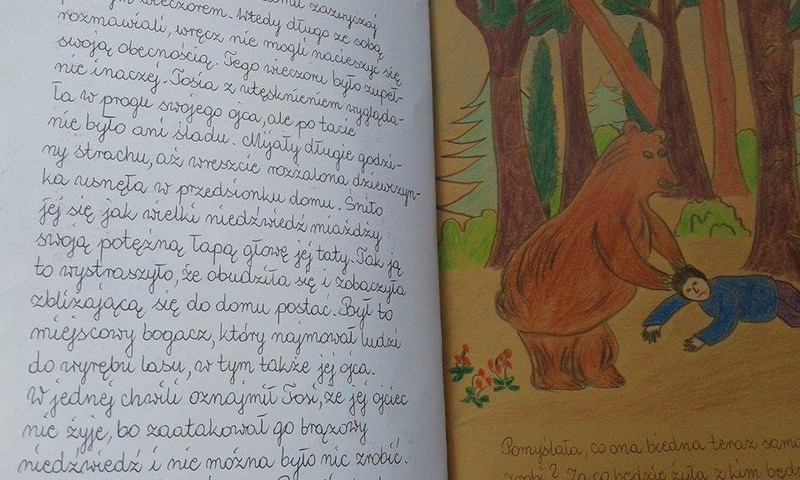 domu zazwyczaj
wieczorem. Wtedy długo ze sobą
rozmawiali, wręcz nie mogli nacieszyć się
swoją obecnością. Tego wieczoru było zupeł-
nie inaczej. Tosia z utęsknieniem wygląda-
ła w progu swojego ojca, ale po tacie
nie było ani śladu. Mijały długie godzi-
ny strachu, aż wreszcie rozżalona dziewczyn-
ka usnęła w przedsionku domu. Śniło
jej się jak wielki niedźwiedź miażdży
swoją potężną łapą głowę jej taty. Tak ją
to wystraszyło, że obudziła się i zobaczyła
zbliżającą się do domu postać. Był to
miejscowy bogacz, który najmował ludzi
do wyrębu lasu, w tym także jej ojca.
W jednej chwili oznajmił Tosi, że jej ojciec
nie żyje, bo zaatakował go brązowy
niedźwiedź i nie można było nic zrobić.
Pomyślała, co ona biedna teraz sama
zrobi? Za co będzie żyła, z kim będ